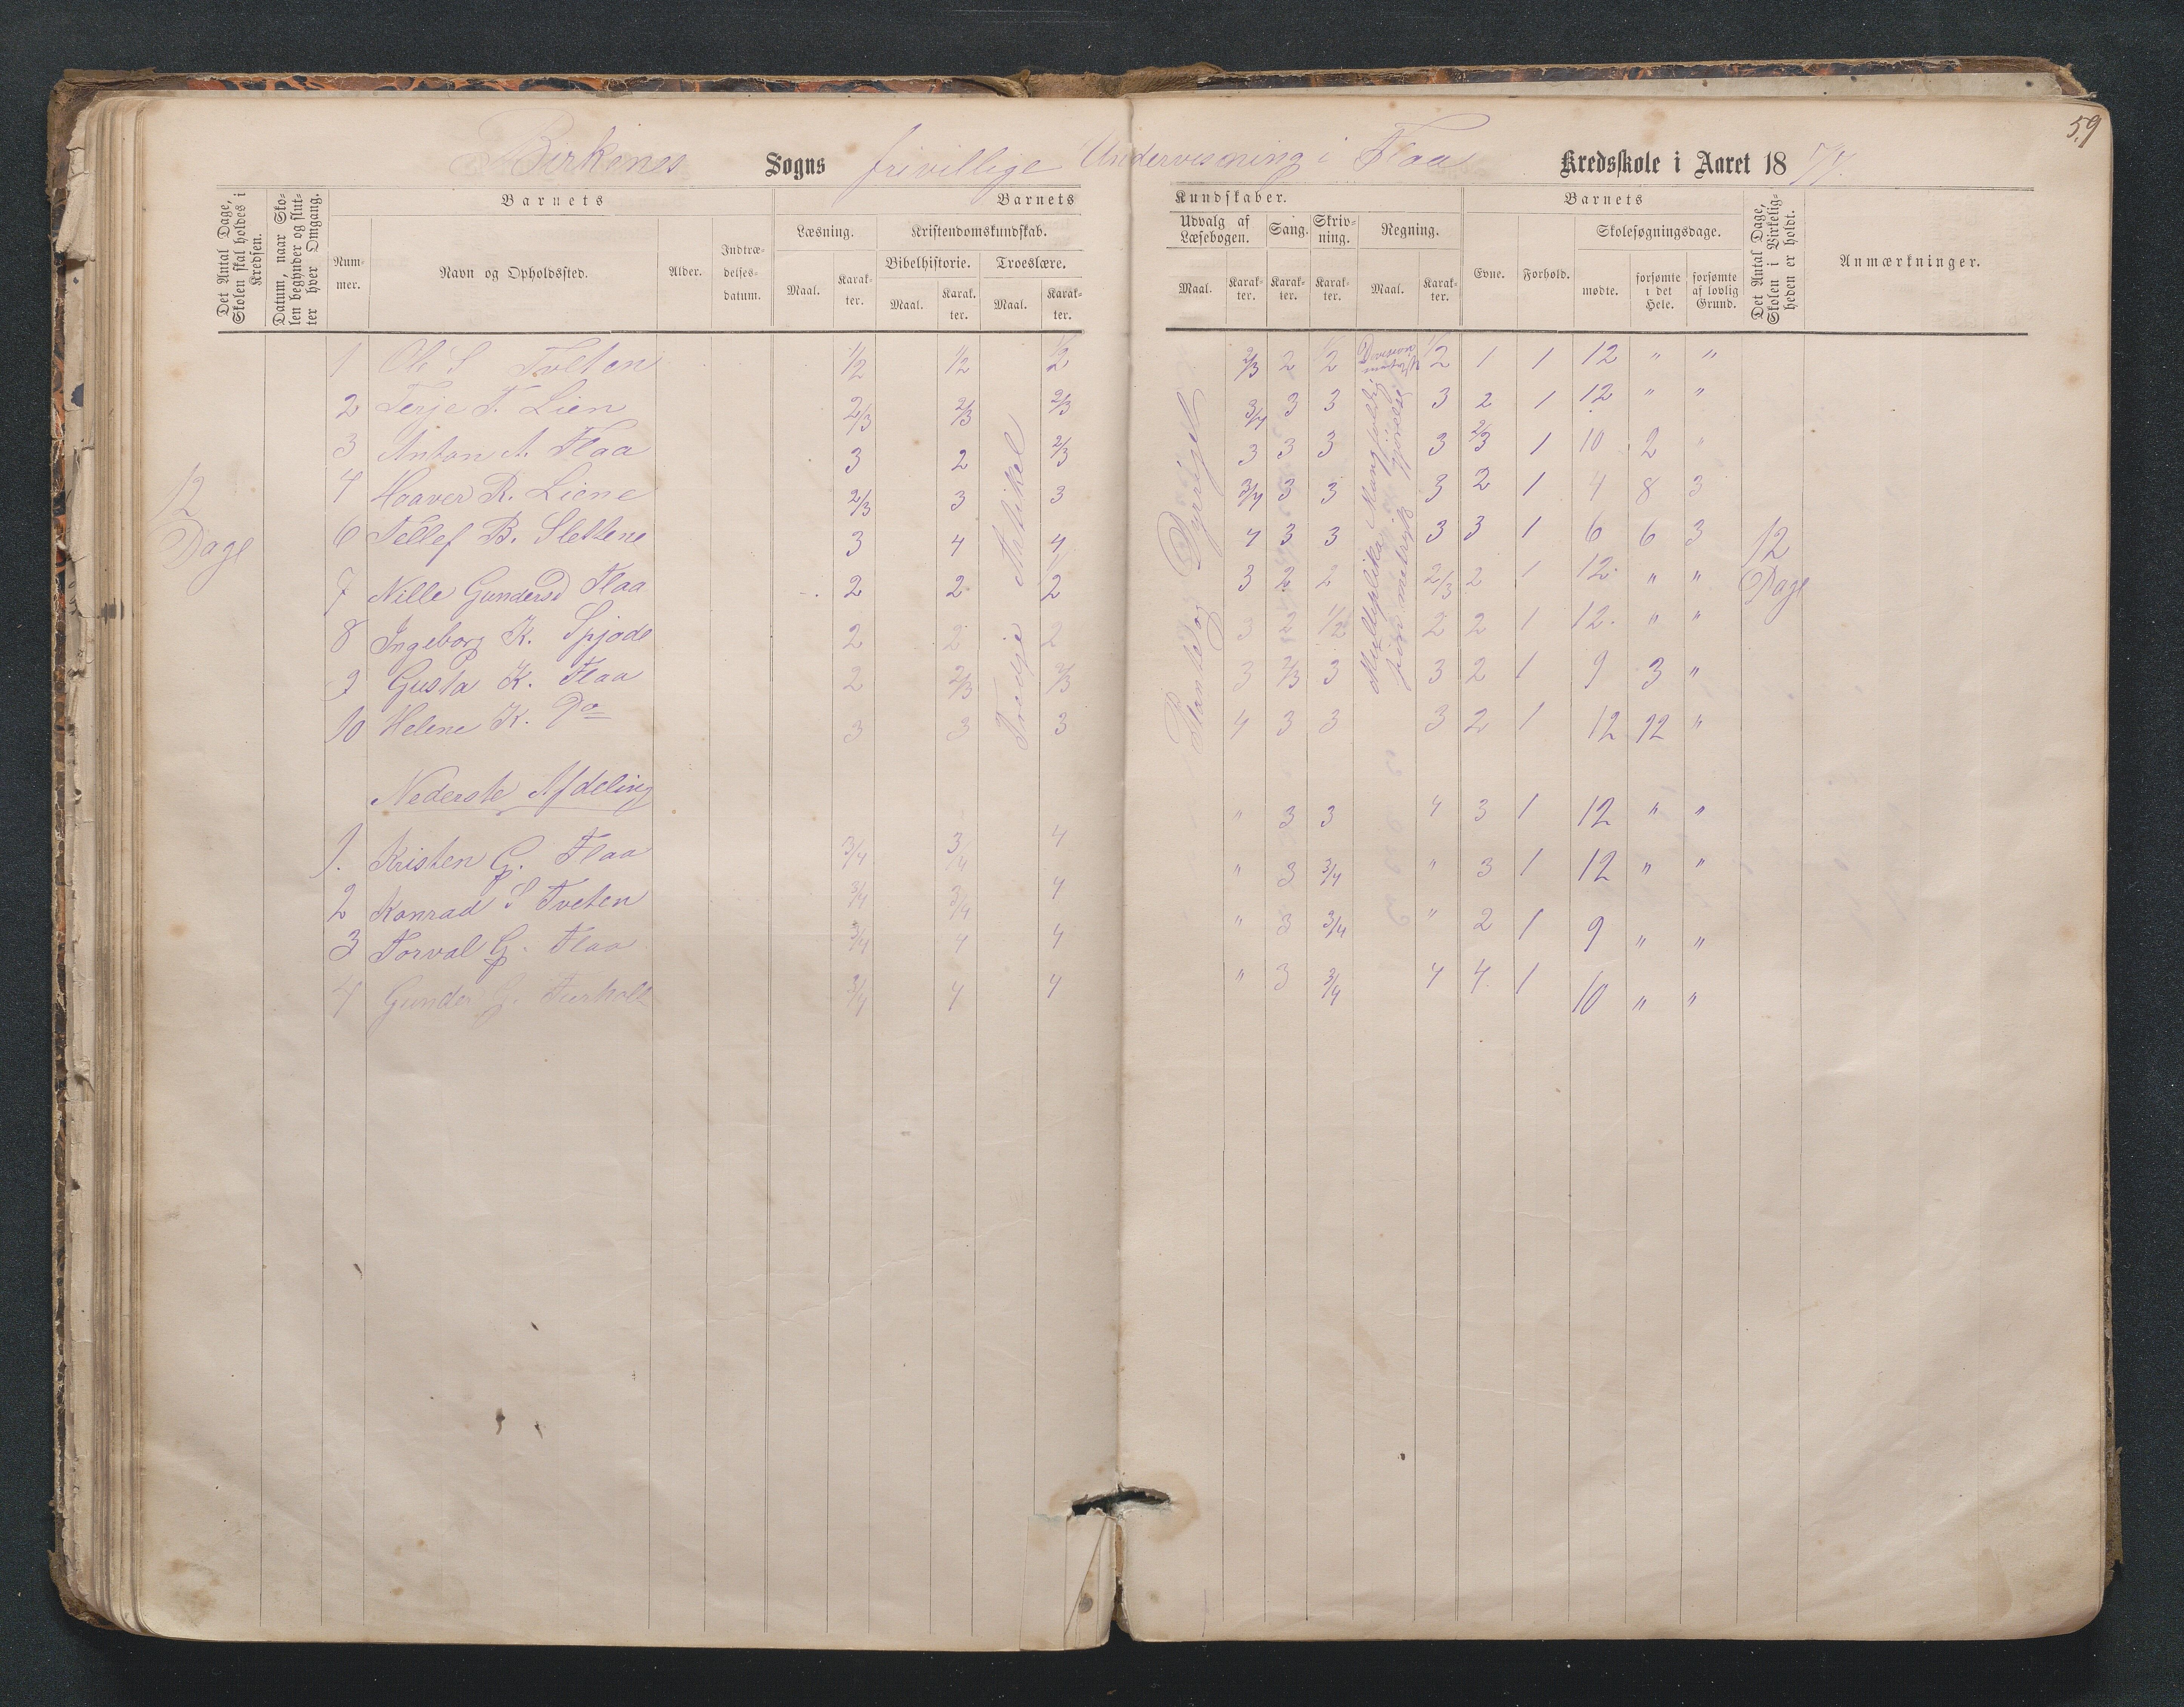 59
Birkenes Sogns frivillige Undervisning i Flaa Kredsskole i Aaret 1877.
Det Antal Dage, Skolen skal holdes i Kredsen.
Datum, naar Skolen begynder og slutter hver Omgang.
Barnets
Nummer.
Navn og Opholdssted.
Alder.
Indtrædelsesdatum.
Barnets Kundskaber.
Læsning.
Maal. Karakter.
Kristendomskundskab.
Bibelhistorie. Troeslære.
Maal. Karakter. Maal. Karakter.
Udvalg af Læsebogen.
Maal. Karakter.
Sang. Karakter.
Skrivning. Karakter.
Regning.
Maal. Karakter.
Barnets
Evne. Forhold.
Skolesøgningsdage.
mødte. forsømte i det Hele. forsømte af lovlig Grund.
Det Antal Dage, Skolen i Virkeligheden er holdt.
Anmærkninger.
12 Dage
Tredje Artikel
Plante og Dyreriget
12 Dage
1 Ole S Tveten 1/2 1/2 1/2 2/3 2 1/2 1/2 1 1 12 " "
2 Terje T. Lien 2/3 2/3 2/3 3/4 3 3 3 2 1 12 " "
3 Anton A. Flaa 3 2 2/3 3 3 3 3 2/3 1 10 2 "
4 Haaver R. Liene 2/3 3 3 3/4 3 3 3 2 1 4 8 3
6 Tellef B. Slettene 3 4 4 4 3 3 3 3 1 6 6 3
7 Nille Gundersd Flaa 2 2 1/2 3 2 2 2/3 2 1 12 " "
8 Ingeborg K. 2 2 2 3 2 1/2 2 2 1 12 " "
9 Gusta K. Flaa 2 2/3 2/3 3 2/3 3 3 2 1 9 3 "
10 Helene K. Do 3 3 3 4 3 3 3 2 1 12 12 "
Nederste Afdeling
1. Kristen G. Flaa 3/4 3/4 4 " 3 3 4 3 1 12 " "
2 Konrad S Tveten 3/4 3/4 4 " 3 3/4 " 3 1 12 " "
3 Torval G. Flaa 3/4 4 4 " 3 3/4 " 2 1 9 " "
4 Gunder G. 3/4 4 4 " 3 3/4 4 4 1 10 " "